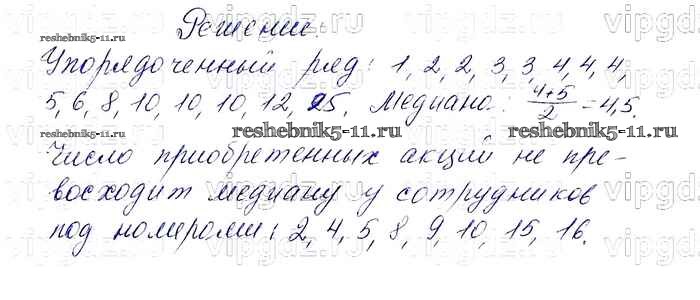 Решение
reshebnik5-11.ru
Упорядоченный ряд: 1, 2, 2, 3, 3, 4, 4, 4,
5, 6, 8, 10, 10, 10, 12, 25. Медиана: (4+5)/2 = 4,5.
reshebnik5-11.ru reshebnik5-11.ru
Число приобретенных акций не пре-
восходит медиану у сотрудников
под номерами: 2, 4, 5, 8, 9, 10, 15, 16.